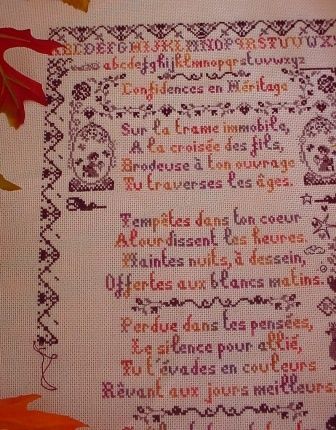 ABCDEFGHIJKLMNOPQRSTUVWX
abcdefghijklmnopqrstuvwxyz
Confidences en Héritage
Sur la trame immobile,
A la croisée des fils,
Brodeuse à ton ouvrage
Tu traverses les âges.
Tempêtes dans ton coeur
Alourdissent les heures.
Maintes nuits, à dessein,
Offertes aux blancs matins.
Perdue dans tes pensées,
Le silence pour allié,
Tu t'évades en couleurs
Rêvant aux jours meilleurs.